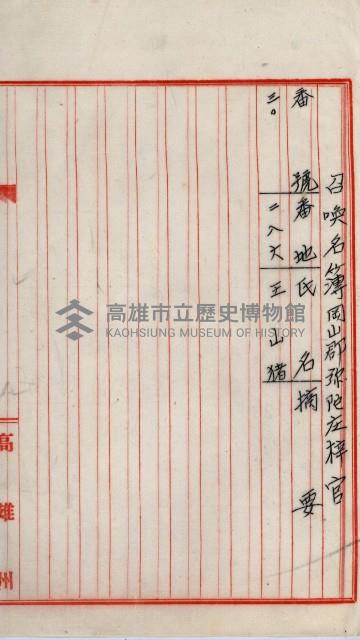 召喚名簿岡山郡弥陀庄梓官
番號番地氏名摘要
三〇二八六王山猪
高雄州
高雄市立歷史博物館
KAOHSIUNG MUSEUM OF HISTORY